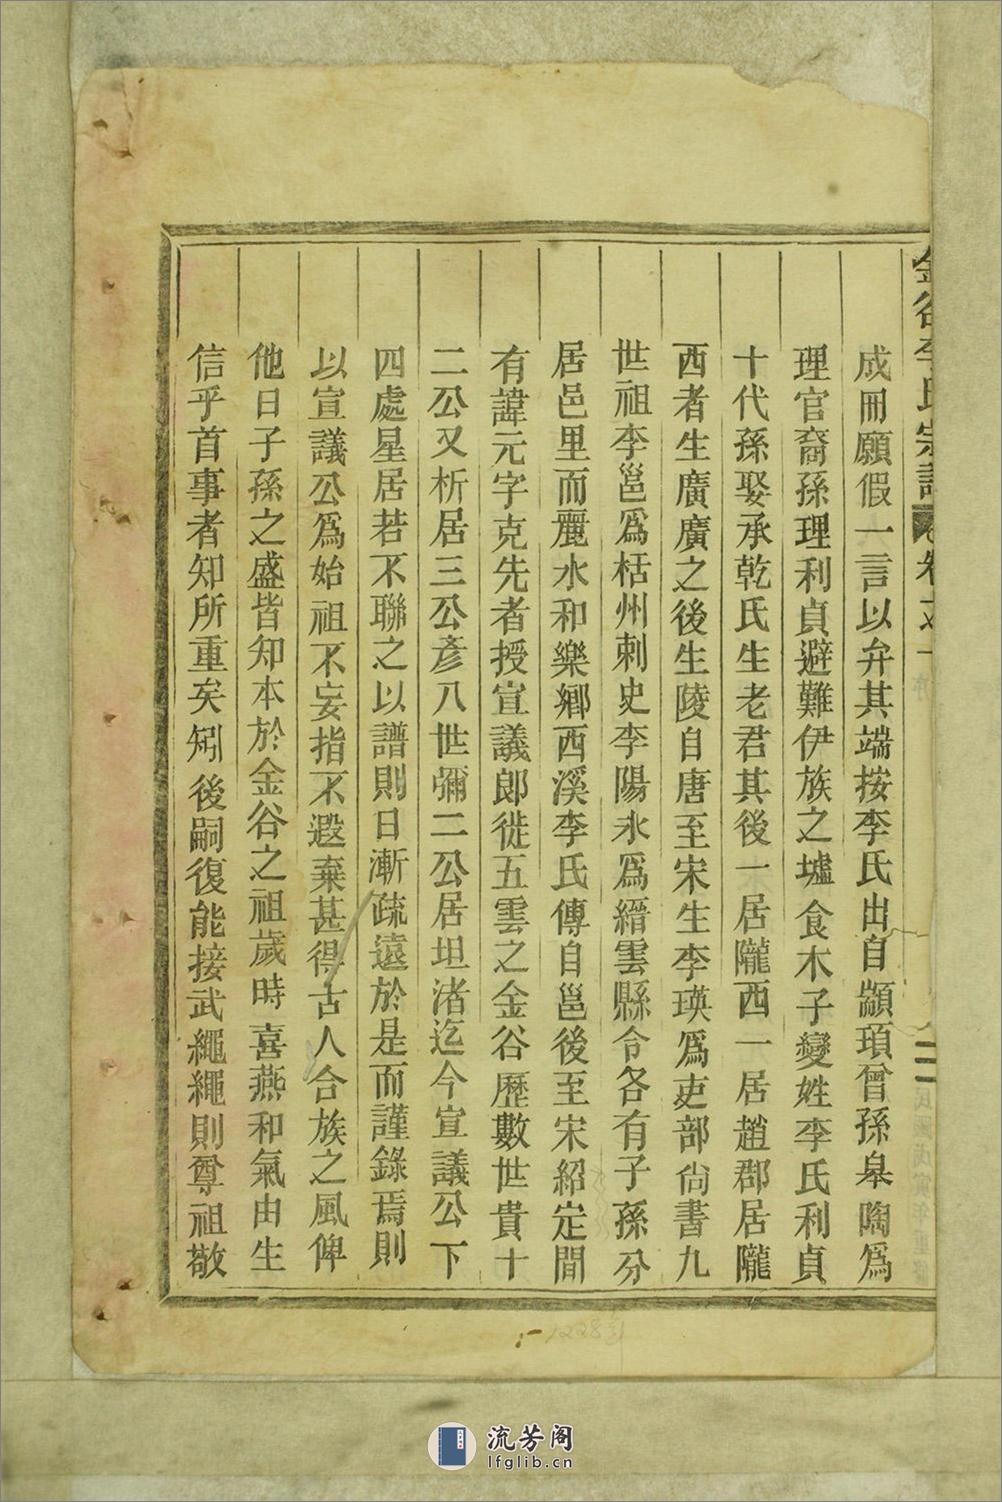 金谷李氏宗譜 卷之一
成冊願假一言以弁其端按李氏出自顓頊曾孫皋陶爲
理官裔孫理利貞避難伊族之墟食木子變姓李氏利貞
十代孫娶承乾氏生老君其後一居隴西一居趙郡居隴
西者生廣廣之後生陵自唐至宋生李瑛爲吏部尙書九
世祖李邕爲栝州刺史李陽氷爲縉雲縣令各有子孫分
居邑里而麗水和樂鄉西溪李氏傳自邕後至宋紹定間
有諱元字克先者授宣議郎徙五雲之金谷歷數世貴十
二公又析居三公彥八世彌二公居坦渚迄今宣議公下
四處星居若不聯之以譜則日漸疏遠於是而謹錄焉則
以宣議公爲始祖不妄指不遐棄甚得古人合族之風俾
他日子孫之盛皆知本於金谷之祖歲時喜燕和氣由生
信乎首事者知所重矣矧後嗣復能接武繩繩則尊祖敬
流芳阁
lfglib.cn